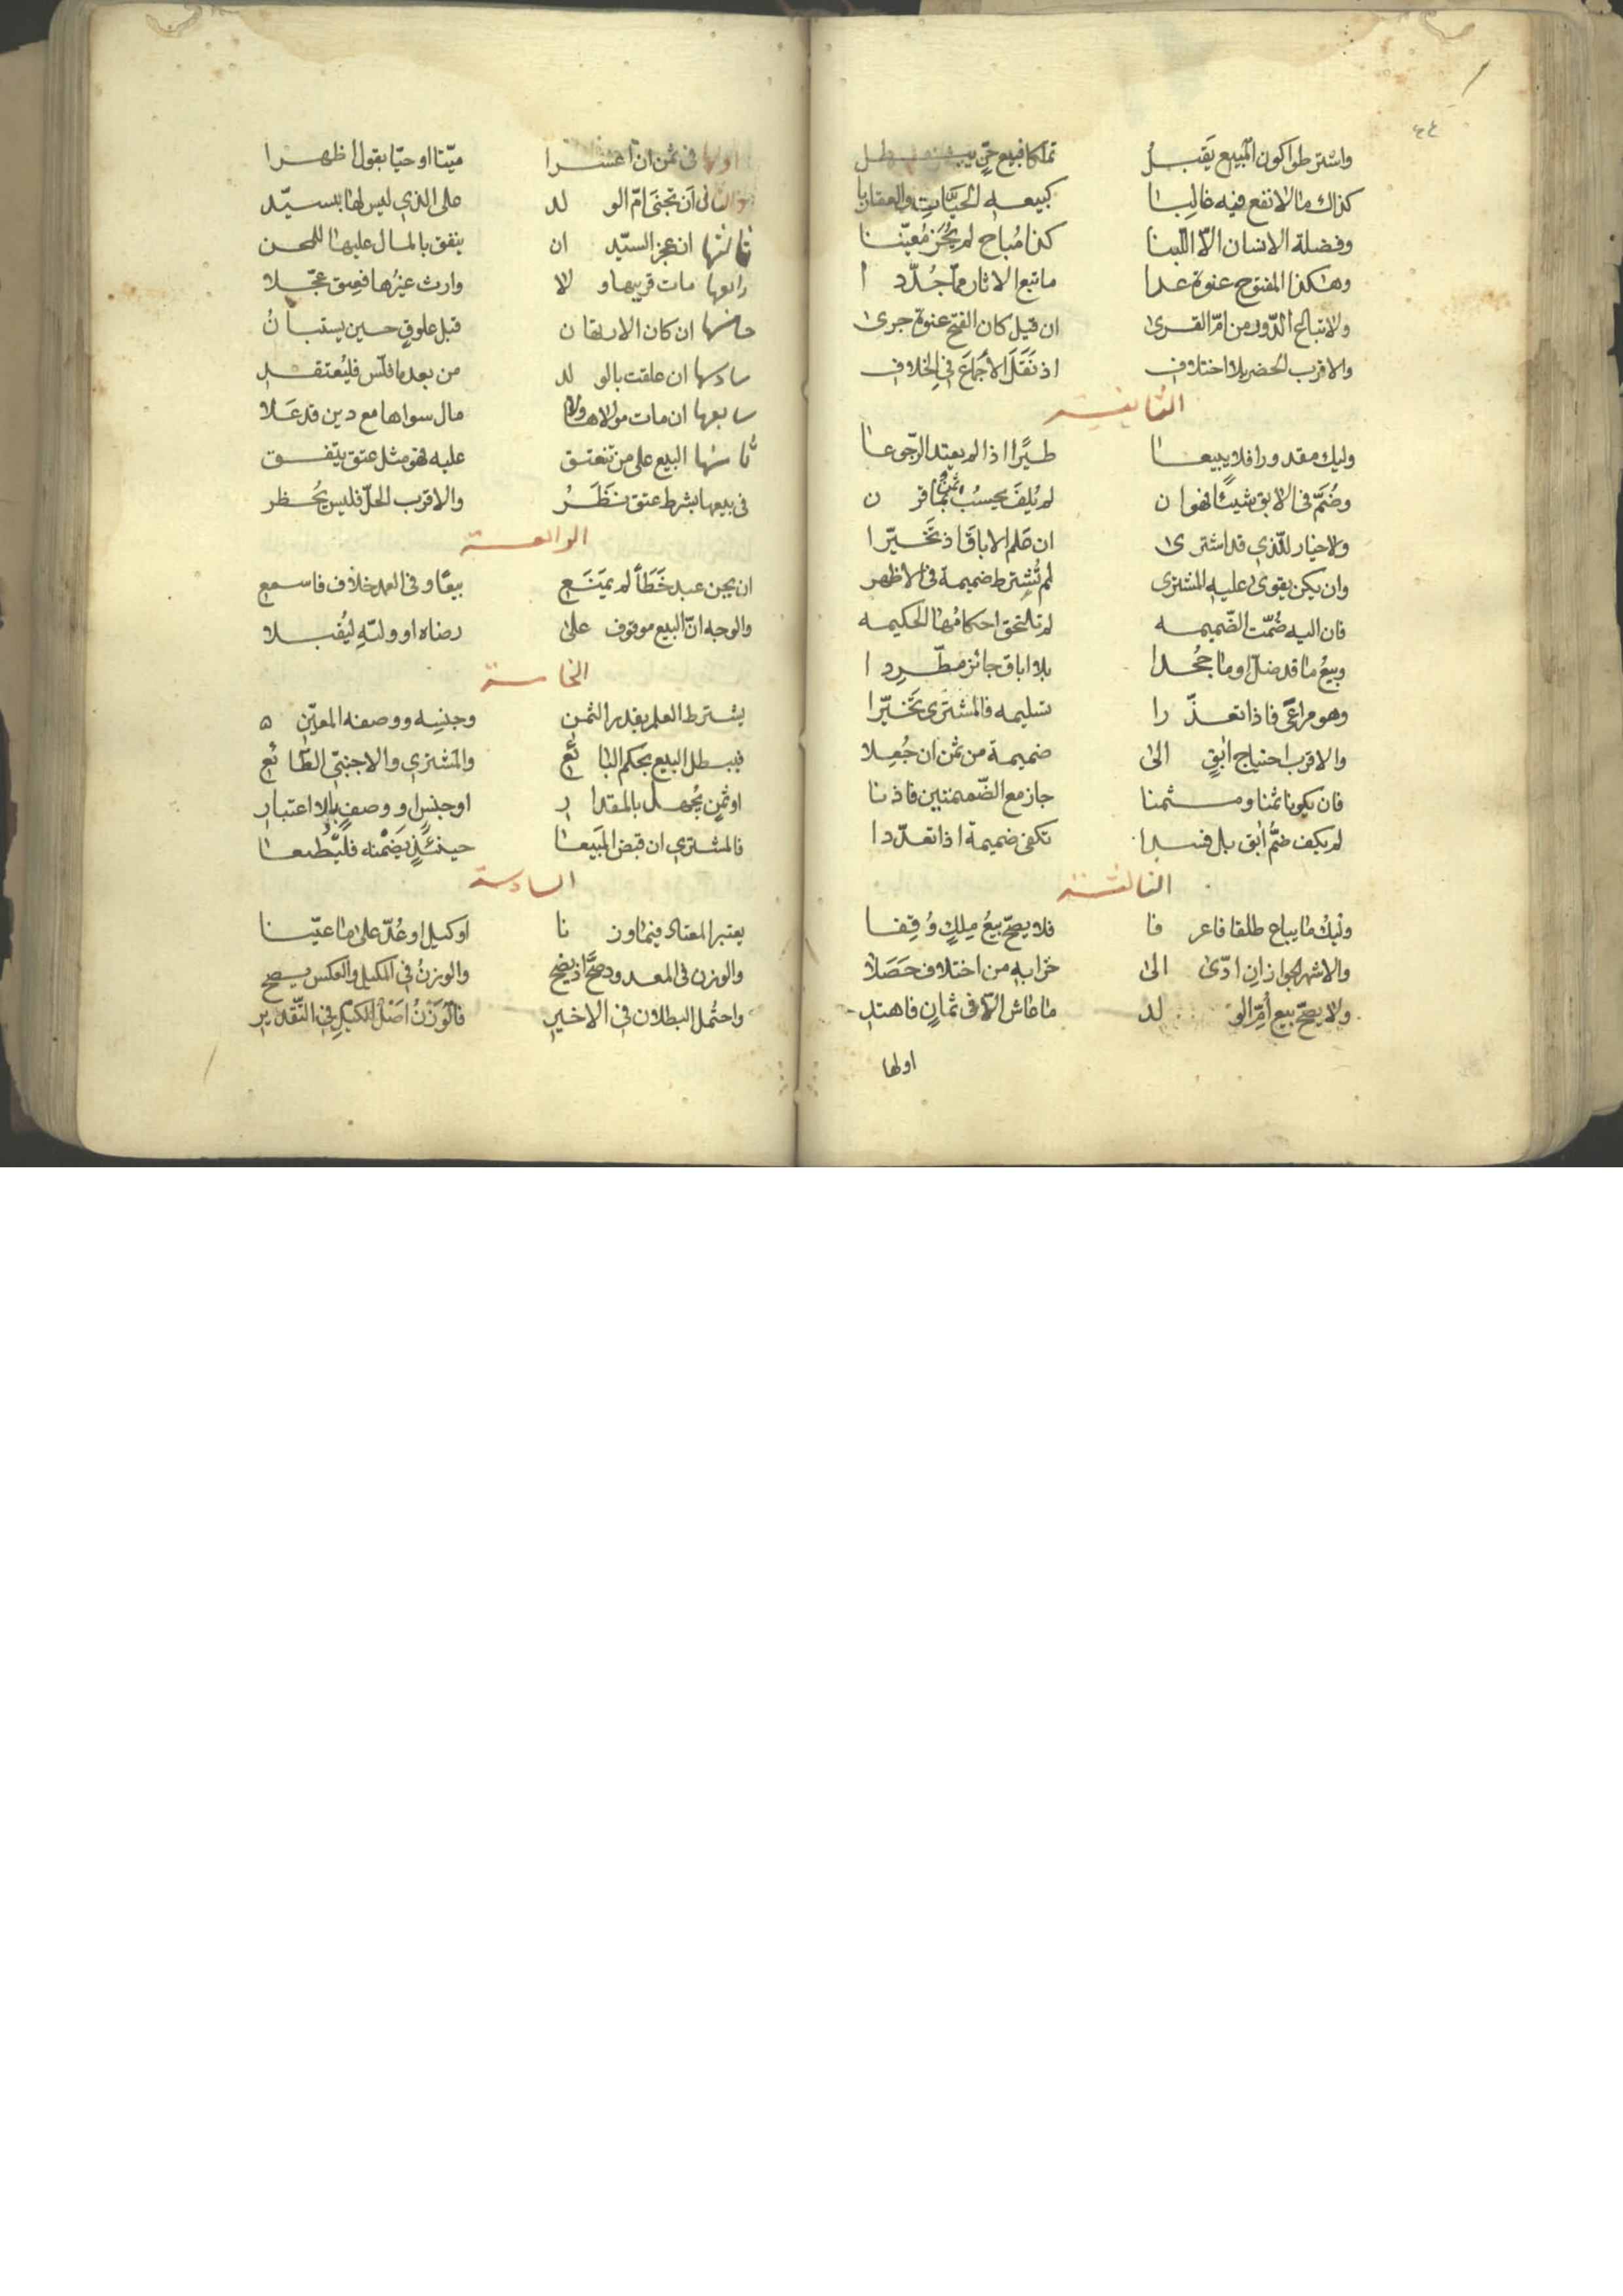 ٤٤
واشترطوا كون المبيع يَقبلُ تملكا فبيع حرّ يبطل
كذاك ما لا نفع فيه غالبا كبيعه الحيّات والعقاربا
وفضلة الانسان الّا اللّبنا كذا مُباح لم يُحَز مُعيّنا
وهكذا المفتوح عنوة عدا ما تبع الاثار ممّا جُدّدا
ولا تباع الدّور من امّ القرى ان قيل كان الفتح عنوة جرى
والاقرب الحضر بلا اختلاف اذ نَقَلَ الأجماعَ في الخلاف
الثانية
وليك مقدورا فلا يبيعا طيرًا اذا لم يعتد الرّجوعا
وضُمَّ في الابق شيئًا فهو ان لم يُلفَ يحسبُ بما قرن
ولا خيار للّذي قد اشترى ان علم الاباق اذ تَخَيّرا
وان يكن يقوى عليه المشترى لم تُشترط ضميمة في الاظهر
فان اليه ضُمّت الضّميمه لم تلتحق احكامُها الحكيمه
وبيعُ ما قد ضلّ او ما جُحدا بلا اباق جائز مطّرِدا
وهو مراعًى فاذا تعذّرا تسليمه فالمشترى تَخَيّرا
والاقرب احتياج ابقٍ الى ضميمة من ثمن ان جُعِلا
فان يكونا ثمنا ومثمنا جاز مع الضّميمتين فاذنا
لم يكف ضمُّ ابق بل فسدا تكفى ضميمة اذا تعدّدا
الثالثة
وليكُ ما يباع طلقا فاعرفا فلا يصحّ بيعُ مِلكٍ وُقِفا
والاشهر الجواز ان ادّى الى خرابه من اختلاف حَصَلا
ولا يصحّ بيع أمّ الولد ما عاش الّا في ثمانٍ فاهتد
اولها
اولها في ثمن ان اعسرا ميّتا او حيّا بقول اظهرا
والثانى ان تجنى امّ الولد على الذي ليس لها بسيّد
ثالثها ان عجز السيّد ان ينفق بالمال عليها للمحن
رابعها مات قريبها ولا وارث غيرُها فعِتق عجّلا
خامسها ان كان الارتهان قبل علوقٍ حين يستبانُ
سادسها ان علقت بالولد من بعد ما فلّس فليُعتقد
سابعها ان مات مولاها ولا مال سواها مع دين قد عَلا
ثامنها البيع على من تنعتق عليه فهو مثل عتق يتّفق
في بيعها بشرط عتق نَظَرُ والاقرب الحلّ فليس يُحظر
الرابعة
ان يجن عبد خَطَأً لم يمتَنَع بيعًا وفى العمد خلاف فاسمع
والوجه انّ البيع موقوف على رضاه او وليّهِ ليُقبلا
الخامسة
يشترط العلم بقدر الثمن وجنسِه ووصفه المعيّن
فيبطل البيع بحكم البائع والمشترى والاجنبّى الطّائع
او ثمنٍ يُجهل بالمقدار او جنسٍ او وصفٍ بلا اعتبار
فالمشترى ان قبض المَبيعا حينئذٍ يَضمْنه فليُطعا
السادسة
يعتبر المعتاد فيما وزنا او كيل او عُدّ على ما عيّنا
والوزن في المعدود صحَّ اذ يضح والوزنُ في المكيل والعكس يصح
واحتُمل البطلان في الاخير فالوَزنُ اصَلُ الكيل في التّقدير